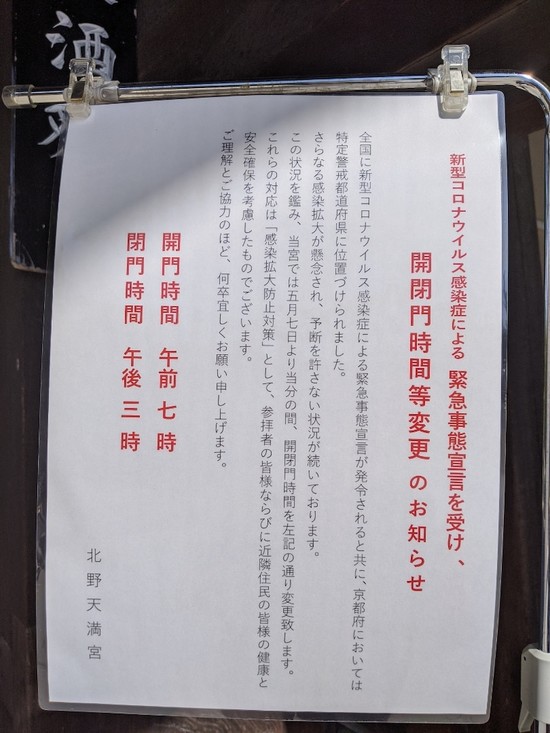 新型コロナウイルス感染症による 緊急事態宣言を受け、
開閉門時間等変更 のお知らせ
全国に新型コロナウイルス感染症による緊急事態宣言が発令されると共に、京都府においては
特定警戒都道府県に位置づけられました。
さらなる感染拡大が懸念され、予断を許さない状況が続いております。
この状況を鑑み、当宮では五月七日より当分の間、開閉門時間を左記の通り変更致します。
これらの対応は「感染拡大防止対策」として、参拝者の皆様ならびに近隣住民の皆様の健康と
安全確保を考慮したものでございます。
ご理解とご協力のほど、何卒宜しくお願い申し上げます。
開門時間 午前 七 時
閉門時間 午後 三 時
北野天満宮
酒